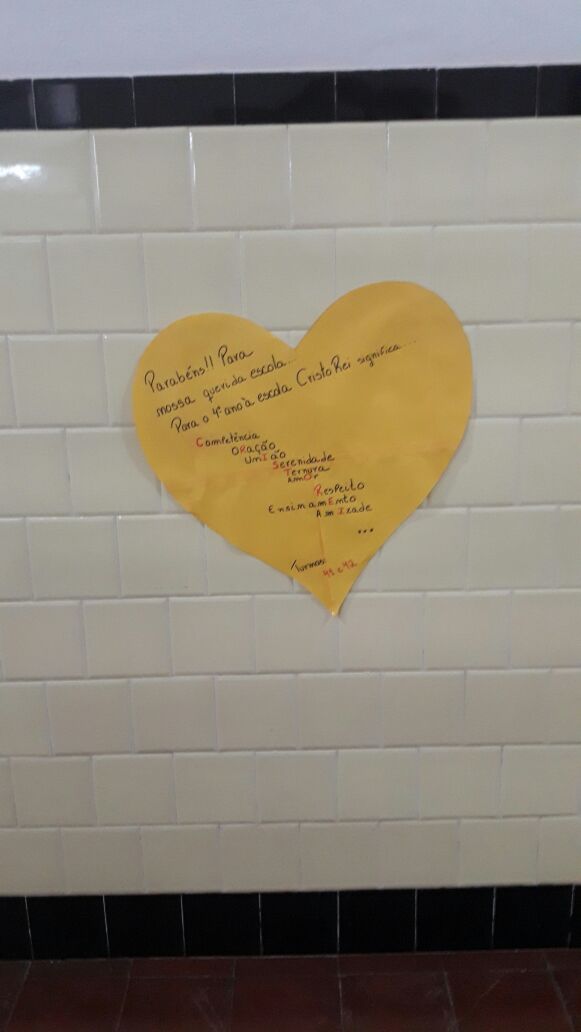 Parabéns!! Para
nossa querida escola...
Para o 4º ano a escola Cristo Rei significa...
Competência
ORação
UnIão
Serenidade
Ternura
AmOr
Respeito
EnsinamEnto
AmIzade
...
Turmas:
41 e 42